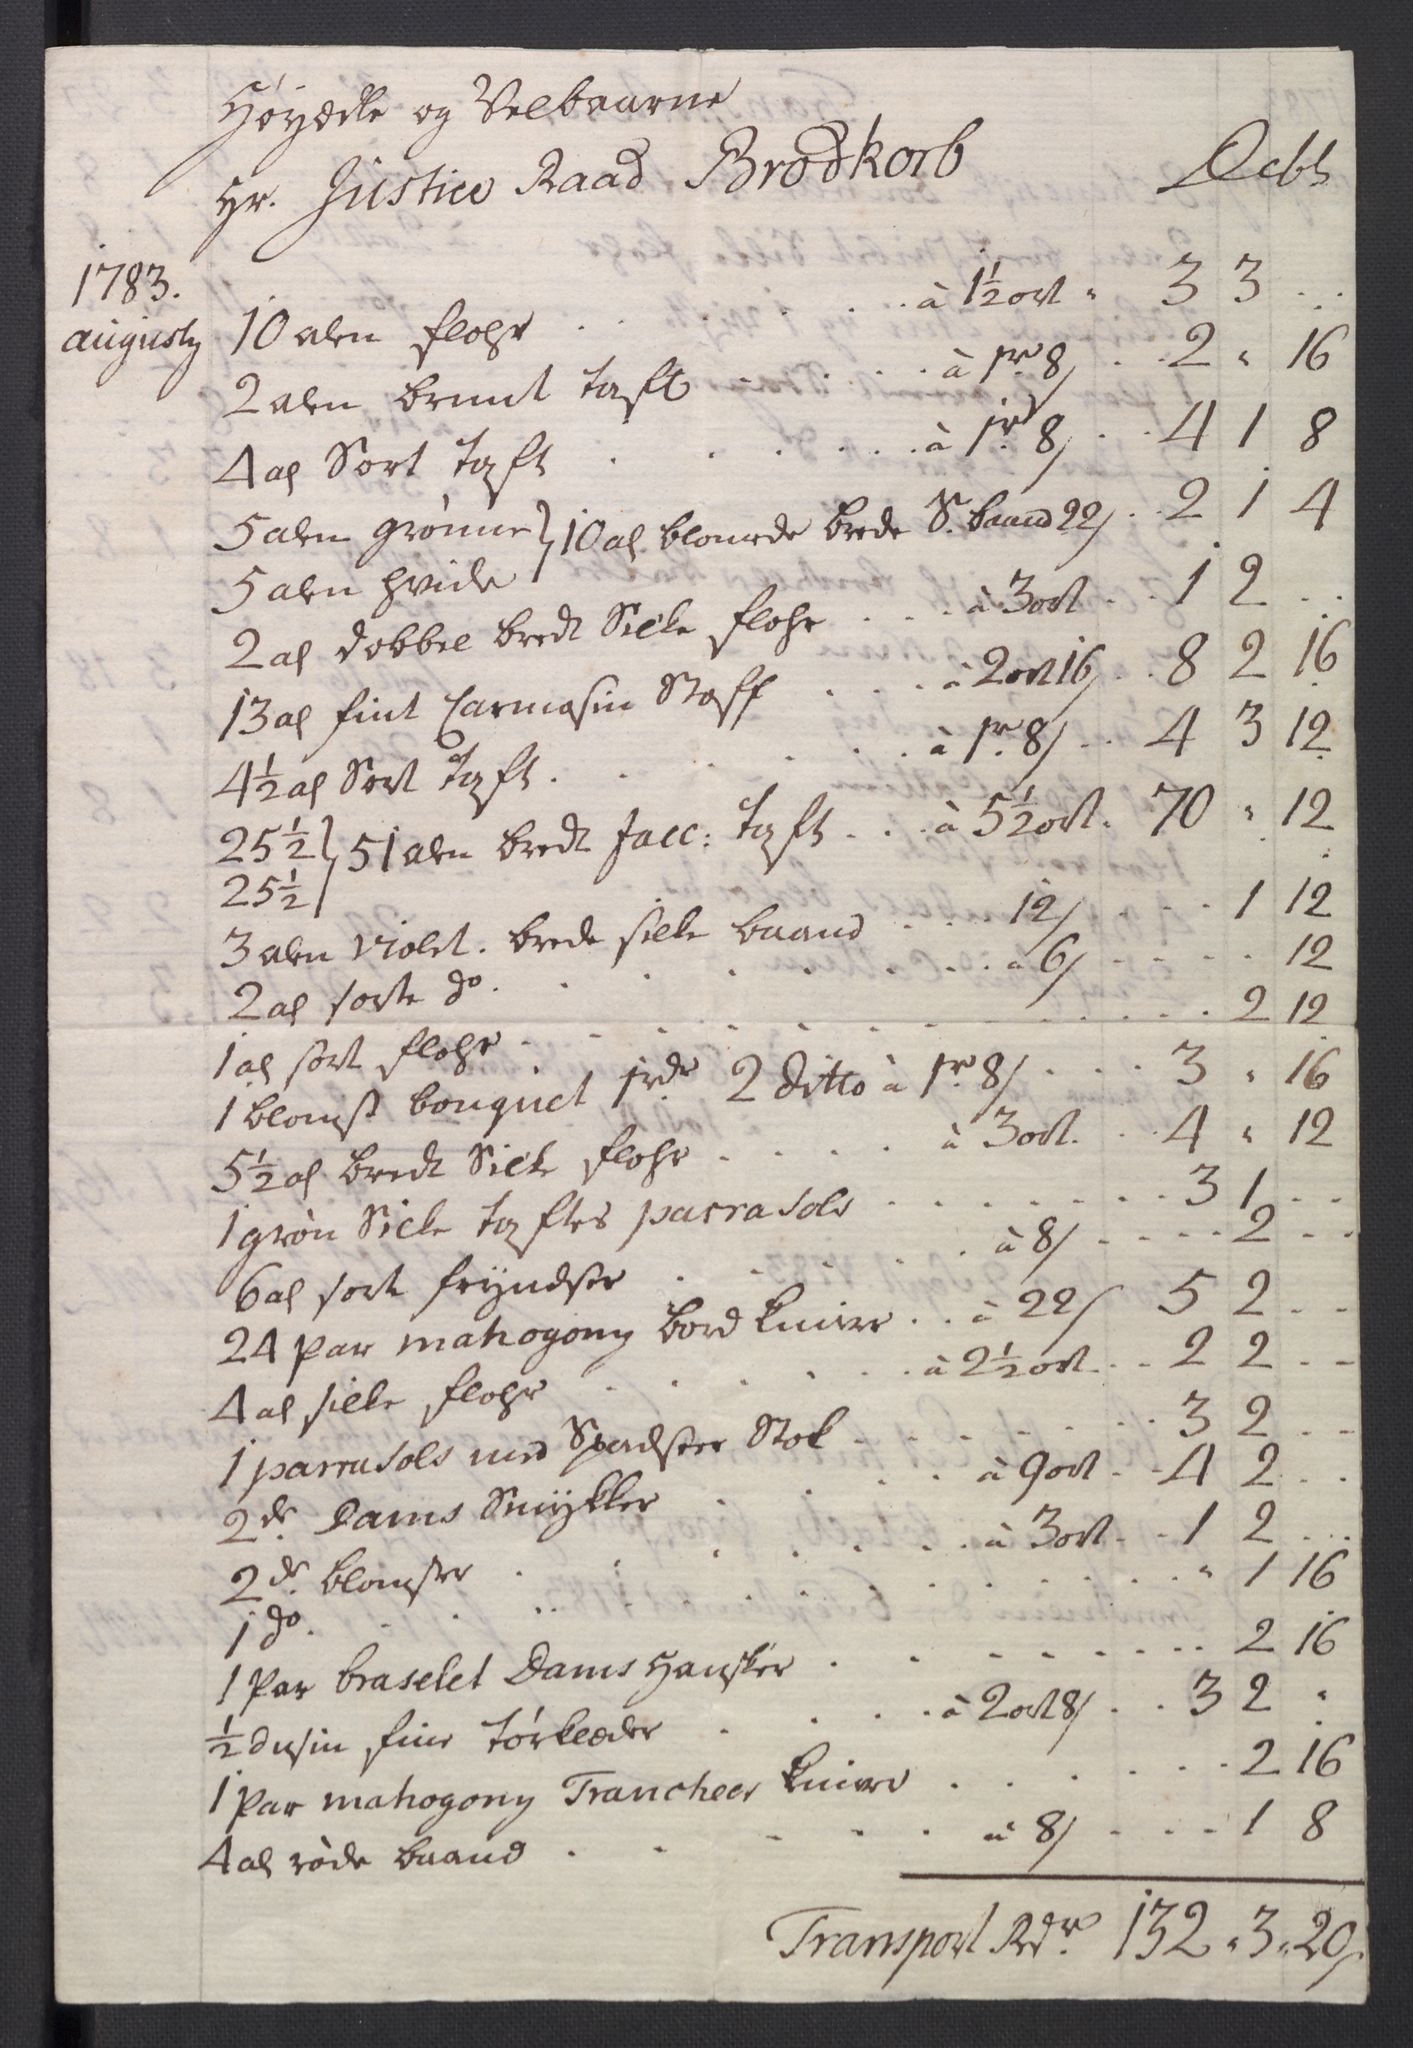 Høyædle og Velbaarne
Hr. Justice Raad Brodkorb Debt
1783.
augusty 10 alen flohr . . . . . . à 1½ ort " 3 3 . .
2 alen brunt taft . . . . . à 1r 8/ . . 2 " 16
4 al Sort taft . . . . . . à 1r 8/ . . 4 1 8
5 alen grønne } 10 al blomede brede S. baand 22/ . . 2 1 4
5 alen hvide
2 al dobbel bredt Silke flohr . . . à 3 ort . . . 1 2 . .
13 al fint Carmosin Stoff . . . à 2 ort 16/ . . 8 2 16
4½ al Sort taft . . . . . . à 1r 8/ . . 4 3 12
25½ } 51 alen bredt facc: taft . . . à 5½ ort . 70 " 12
25½
3 alen violet . brede silke baand . . . 12/ . . . . 1 12
2 al sorte do . . . . . . . . à 6/ . . . . . 12
1 al sort flohr . . . . . . . . . . . . 2 12
1 blomst bouquet 1rdr 2 ditto à 1r 8/ . . . . 3 " 16
5½ al bredt Silke flohr . . . . . à 3 ort . . . 4 " 12
1 grøn Silke taftes parrasols . . . . . . . . 3 1 . .
6 al sort fryndser . . . . . . à 8/ . . . . . 2 . .
24 par mahogony bord knive . . à 22/ 5 2 . .
4 al silke flohr . . . . . . à 2½ ort . . . 2 2 . .
1 parrasols med Spadser Stok . . . . . . . 3 2 . .
2de Dams Smykker . . . . à 9 ort . . 4 2 . .
2de blomster . . . . . . à 3 ort . . 1 2 . .
1 do . . . . . . . . . . . . " 1 16
1 Par braselet Dams Hansker . . . . . . . . 2 16
½ dusin fine tørklæder . . . . à 2 ort 8/ . . 3 2 "
1 Par mahogony Trancheer knive . . . . . . . 2 16
4 al røde baand . . . . . à 8/ . . . . 1 8
Transport Rdr. 132 " 3 " 20/